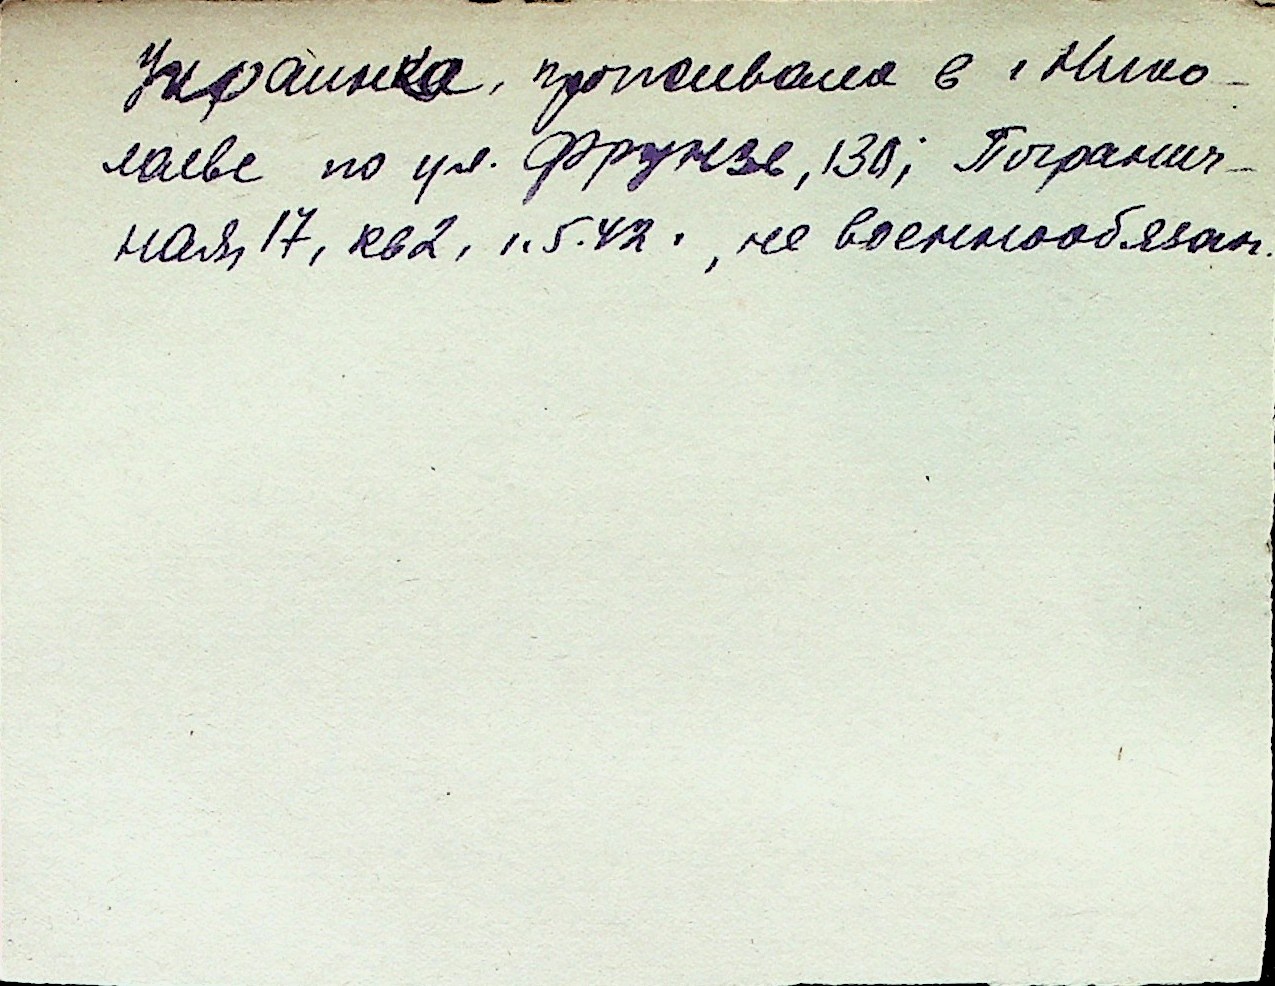 Украинка, проживала в г Нико-
лаеве по ул. Фрунзе, 130; Погранич-
ная, 17, кв 2, 1.5.42. , не военнообязан.